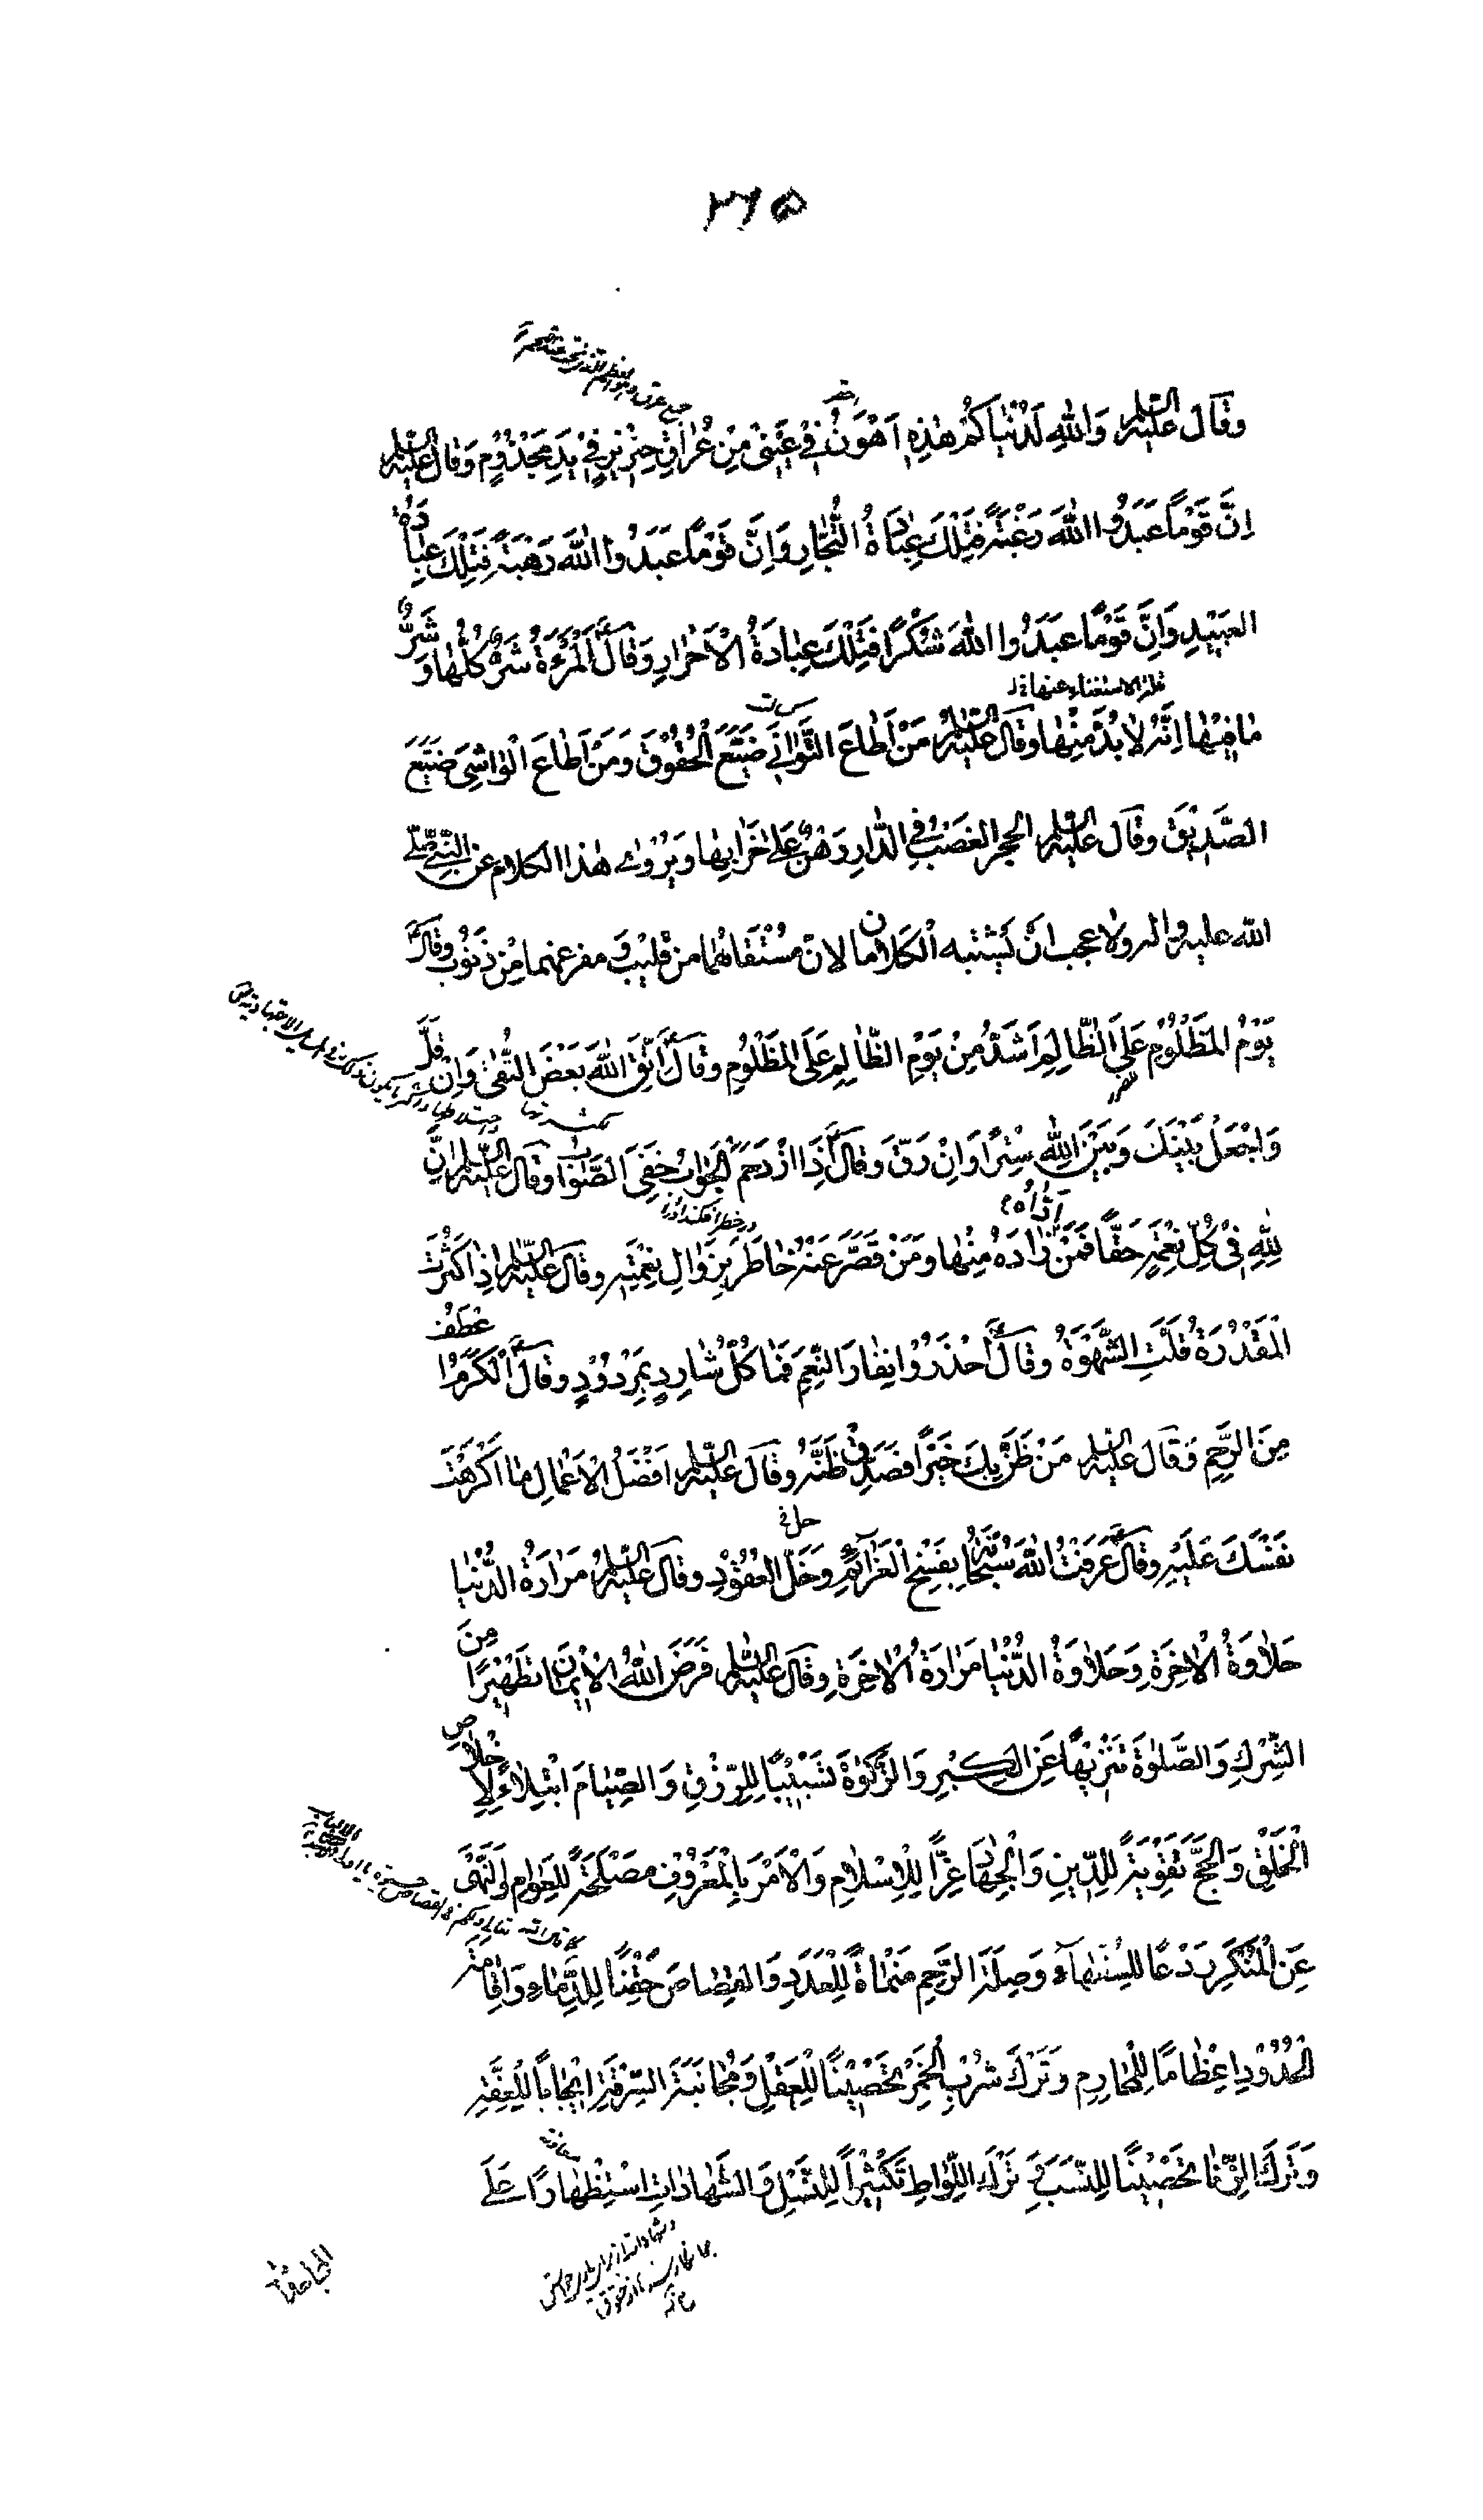 ٢٦٥
وقال عليه السلم وَاللهِ لَدُنْيَاكُمْ هٰذِهِ اَهْوَنُ فِي عَيْنِي مِنْ عُرَاقِ خِنْزِيرٍ فِي يَدِ مَجْذُومٍ وَقال عليه السلم
اِنَّ قَوْمًا عَبَدُوا اللهَ رَغْبَةً فَتِلْكَ عِبَادَةُ التُّجَّارِ وَاِنَّ قَوْمًا عَبَدُوا اللهَ رَهْبَةً فَتِلْكَ عِبَادَةُ
العَبِيدِ وَاِنَّ قَوْمًا عَبَدُوا اللهَ شُكْرًا فَتِلْكَ عِبَادَةُ الْاَحْرَارِ وَقَالَ الْمَرْءَةُ شَرٌّ كُلُّهَا وَشَرُّ
مَا فِيهَا اِنَّهُ لَا بُدَّ مِنْهَا وقال عليه السلم مَنْ اَطَاعَ التَّوَانِيَ ضَيَّعَ الْحُقُوقَ وَمَنْ اَطَاعَ الْوَاشِيَ ضَيَّعَ
الصَّدِيقَ وقال عليه السلم الحجر الغَصْبُ فِي الدَّارِ رَهْنٌ عَلَى خَرَابِهَا وَيُرْوٰى هٰذا الكلام عن النَّبِيِّ صلّى
الله عليه واله ولا عجب اَنْ يَشْتَبِه الْكَلَامَانِ لانّ مُسْتَقَاهُمَا من قَلِيْبٍ وَ مفرغهما مِنْ ذَنُوبٍ وقال
يَوْمُ المَظْلُومِ عَلَى الظَّالِمِ اَشَدُّ مِنْ يَوْمِ الظَّالِمِ عَلَى المَظْلُومِ وقال اتَّقِ اللهَ بَعْضَ التُّقٰى وَاِنْ قَلَّ
وَاجْعَلْ بَيْنَكَ وَبَيْنَ اللهِ سِتْرًا وَاِنْ رَقَّ وقال اِذَا ازْدَحَمَ الْجَوَابُ خَفِيَ الصَّوَابُ وقال عليه السلم اِنَّ
لِلّٰهِ فِي كُلِّ نِعْمَةٍ حَقًّا فَمَنْ اَدَّاهُ زَادَهُ مِنْهَا ومَنْ قَصَّرَ عَنْهُ خَاطَرَ بِزَوَالِ نِعْمَتِهِ وقال عليه السلم اِذا كَثُرَتِ
الْمَقْدُرَةُ قَلَّتِ الشَّهْوَةُ وقال احْذَرُوا نِفَارَ النِّعَمِ فَمَا كُلُّ شَارِدٍ بِمَرْدُودٍ وقال الْكَرَمُ اَعْطَفُ
مِنَ الرَّحِمِ وَقال عليه السلم مَنْ ظَنَّ بِكَ خَيْرًا فَصَدِّقْ ظَنَّهُ وقال عليه السلم اَفْضَلُ الْاَعْمَالِ مَا اَكْرَهْتَ
نَفْسَكَ عَلَيْهِ وقال عَرَفْتُ اللهَ سُبْحَانَهُ بِفَسْخِ الْعَزَآئِمِ وَحَلِّ العُقُودِ وقال عليه السلم مَرَارَةُ الدُّنْيَا
حَلَاوَةُ الْاٰخِرَةِ وَحَلَاوَةُ الدُّنْيَا مَرَارَةُ الْاٰخِرَةِ وقال عليه السلم فَرَضَ اللهُ الْاِيْمَانَ تَطْهِيْرًا مِنَ
الشِّرْكِ وَالصَّلٰوةَ تَنْزِيْهًا عَنِ الكِبْرِ وَالزَّكٰوةَ تَسْبِيْبًا لِلرِّزْقِ وَالصِّيَامَ ابْتِلَاءً لِاِخْلَاصِ
الْخَلْقِ وَالْحَجَّ تَقْوِيَةً لِلدِّينِ وَالْجِهَادَ عِزًّا لِلْاِسْلَامِ وَالْاَمْرَ بِالْمَعْرُوفِ مَصْلَحَةً لِلْعَوَامِ وَالنَّهْيَ
عَنِ الْمُنْكَرِ رَدْعًا لِلسُّفَهَآءِ وَصِلَةَ الرَّحِمِ مَنْمَاةً لِلْعَدَدِ وَالقِصَاصَ حَقْنًا لِلدِّمَاءِ وَاِقَامَةَ
الحُدُوْدِ اِعْظَامًا لِلْمَحَارِمِ وَتَرْكَ شُرْبِ الْخَمْرِ تَحْصِيْنًا لِلْعَقْلِ وَمُجَانَبَةَ السَّرِقَةِ اِيْجَابًا لِلْعِفَّةِ
وَتَرْكَ الزِّنَا تَحْصِيْنًا لِلنَّسَبِ وَ تَرْكَ اللِّوَاطِ تَكْثِيْرًا لِلنَّسْلِ وَالشَّهَادَاتِ اسْتِظْهَارًا عَلَى
المجاحدات